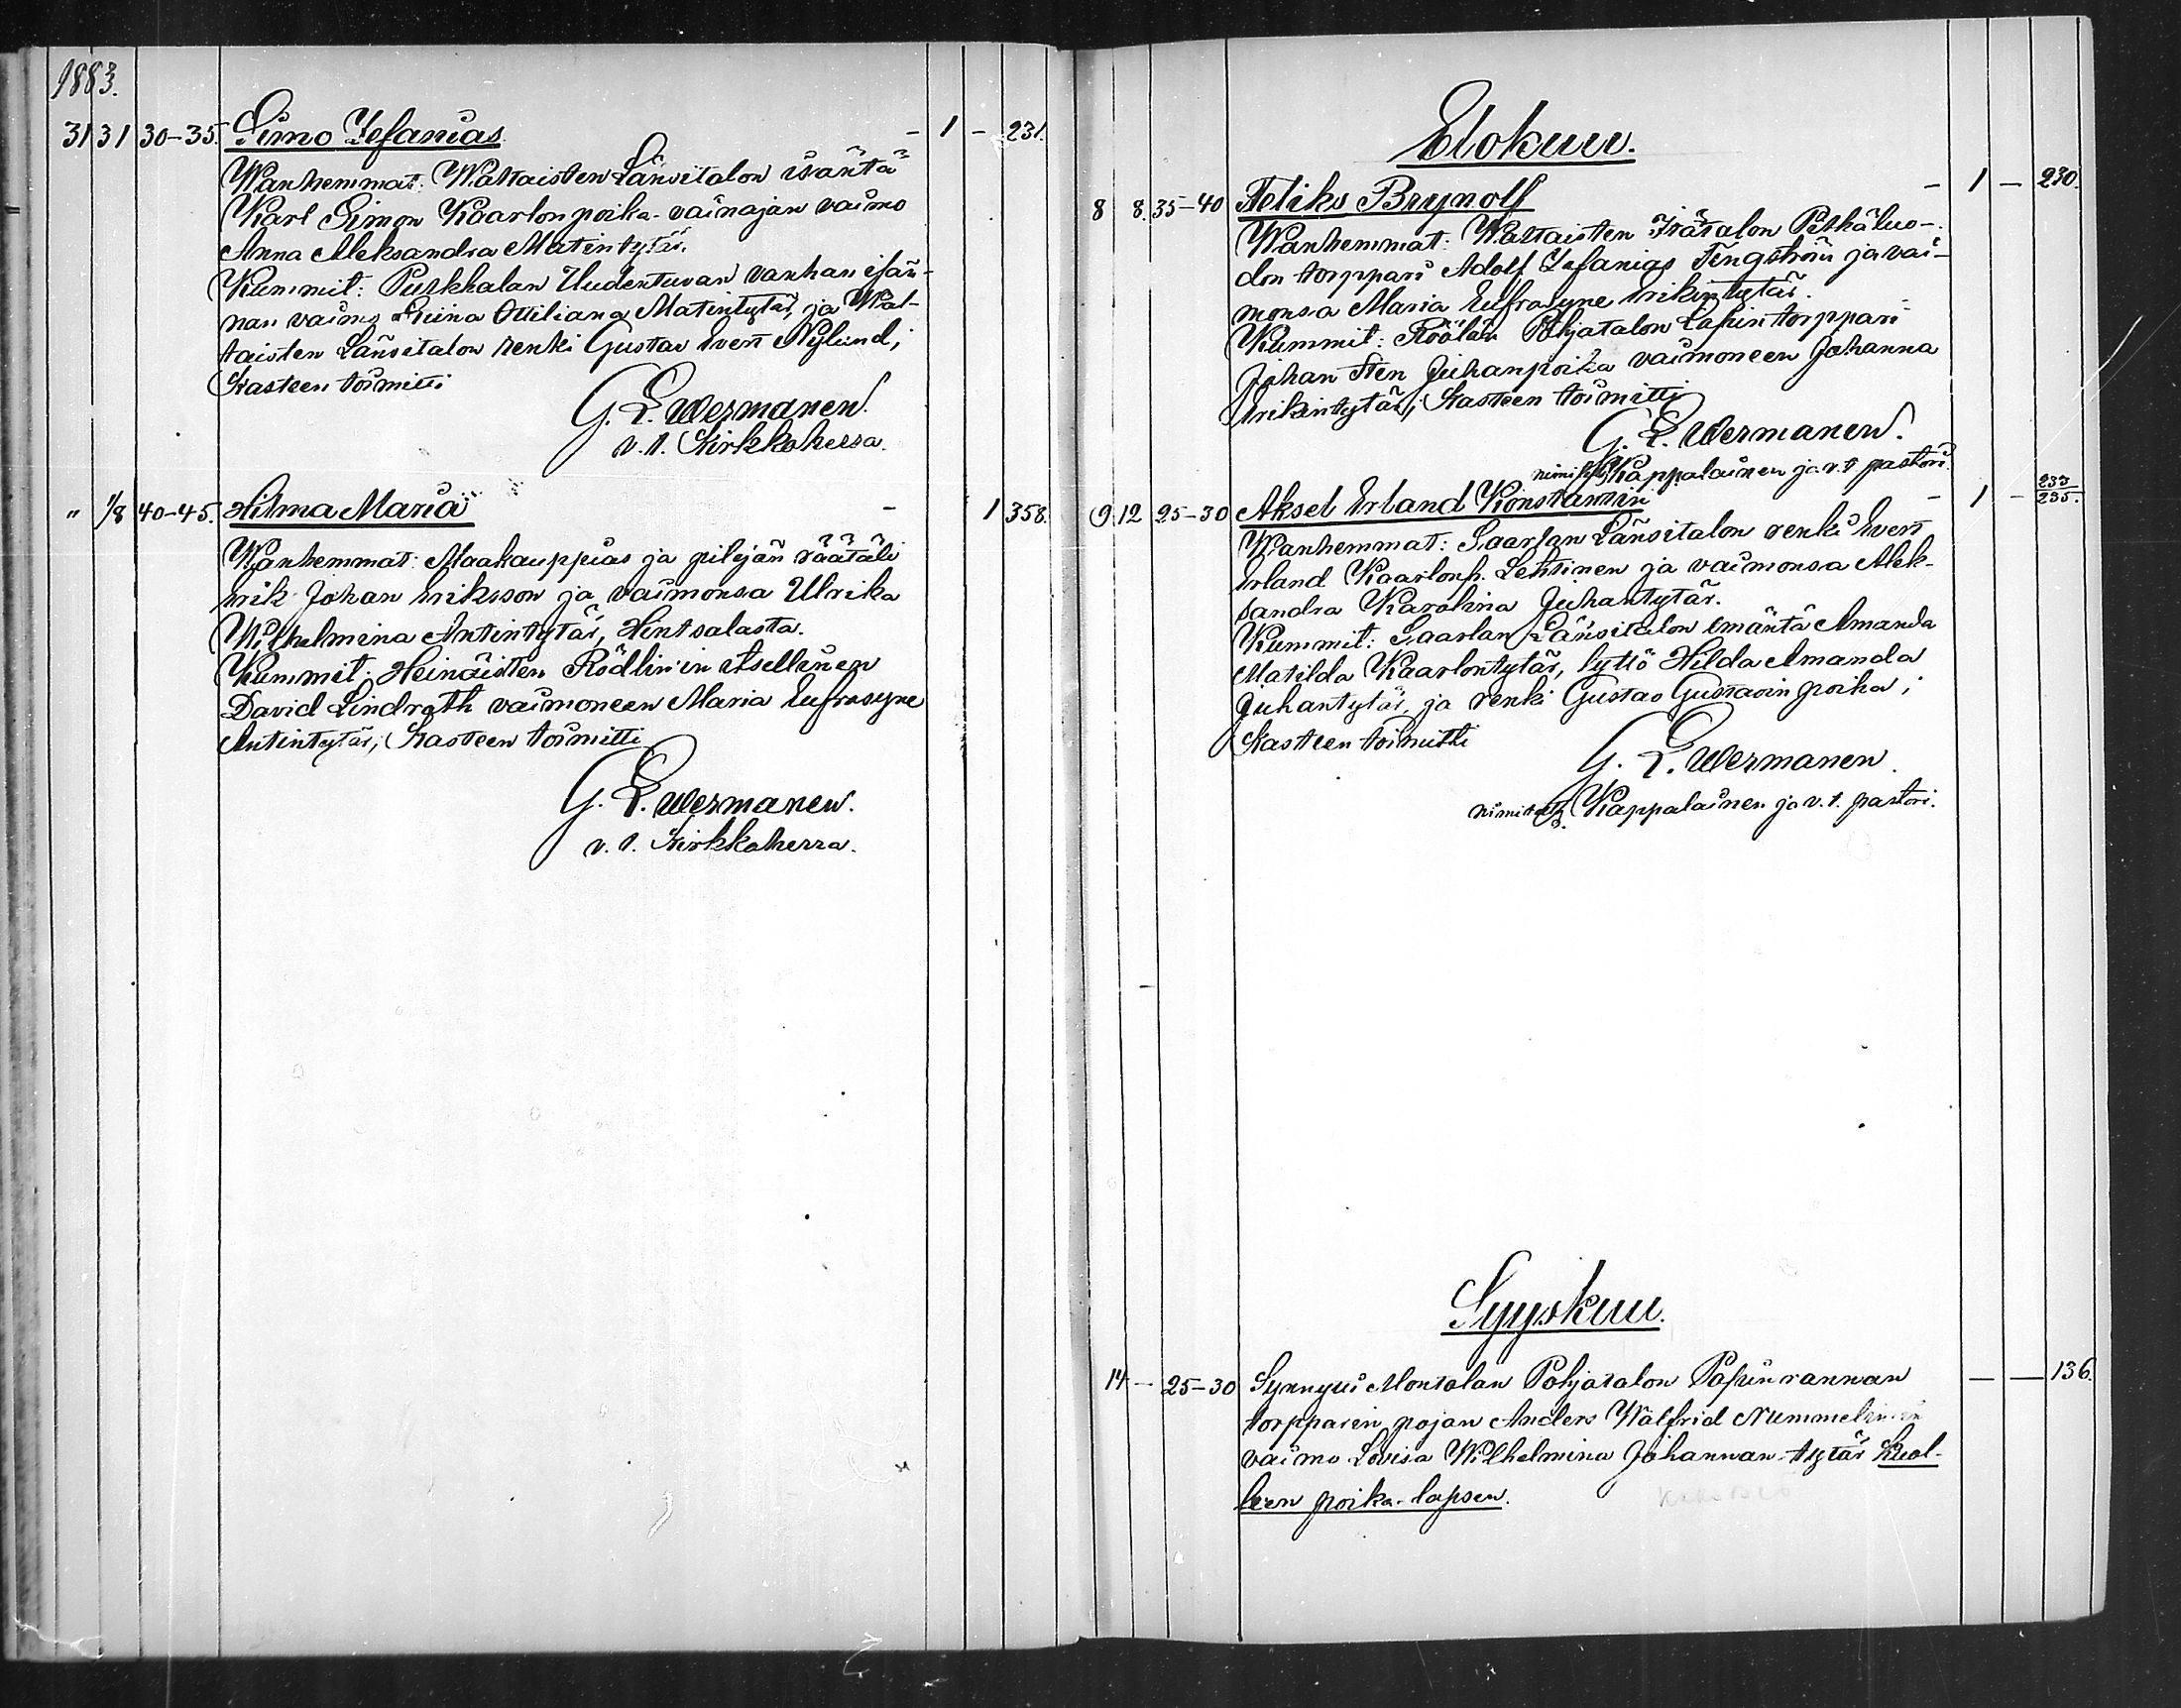 1883.
31 31 30-35. Simo Sefanias - 1 - 231.
Wanhemmat: Wattaisten Länsitalon isäntä
Karl Simon Kaarlonpoika-vainajan vaimo
Anna Aleksandra Matintytär.
Kummit: Purkhalan Uudentuvan vanhan isän-
nan vaimo Stiina Ottiliana Matintytär, ja Wat-
taisten Länsitalon renki Gustav Evert Nylund;
Kasteen toimitti
G. E. Wermanen.
v. t. Kirkkoherra.
" 1/8 40-45. Hilma Maria - 1 358.
Wanhemmat: Maakauppias ja pitäjän räätäli
Erik Johan Eriksson ja vaimonsa Ulrika
Wilhelmina Antintytär, Hintsalasta.
Kummit: Heinäisten Rödlinin itsellinen
David Lindroth vaimoneen Maria Eufrosyne
Antintytär; Kasteen toimitti
G. E. Wermanen.
v. t. Kirkkoherra.
Elokuu.
8 8. 35-40 Feliks Brynolf - 1 - 230.
Wanhemmat: Wattaisten Itätalon Pitkäluo-
don torppari Adolf Sefanias Tengström ja vai-
monsa Maria Eufrosyne Erikintytär.
Kummit: Röölän Pohjatalon torppari
Johan Sten Juhanpoika vaimoneen Johanna
Erikintytär; Kasteen toimitti
G. E. Wermanen.
Kappalainen ja v. t. pastori.
9. 12 25-30 Aksel Erland Konstantin - 1 - 235.
Wanhemmat: Saarlan Länsitalon renki Evert
Erland Kaarlonp. Lehtinen ja vaimonsa Alek-
sandra Karolina Juhantytär.
Kummit: Saarlan Länsitalon emäntä Amanda
Matilda Kaarlontytär, tyttö Hilda Amanda
Juhantytär, ja renki Gustav Gustavin poika;
Kasteen toimitti
G. E. Wermanen.
Kappalainen ja v. t. pastori.
Syyskuu.
14 - 25-30 Synnytti Montalan Pohjatalon rannan - - 136.
torpparin pojan Anders Walfrid Nummelinin
vaimo Lovisa Wilhelmina Johannan-tytär kuol-
leen poika-lapsen.